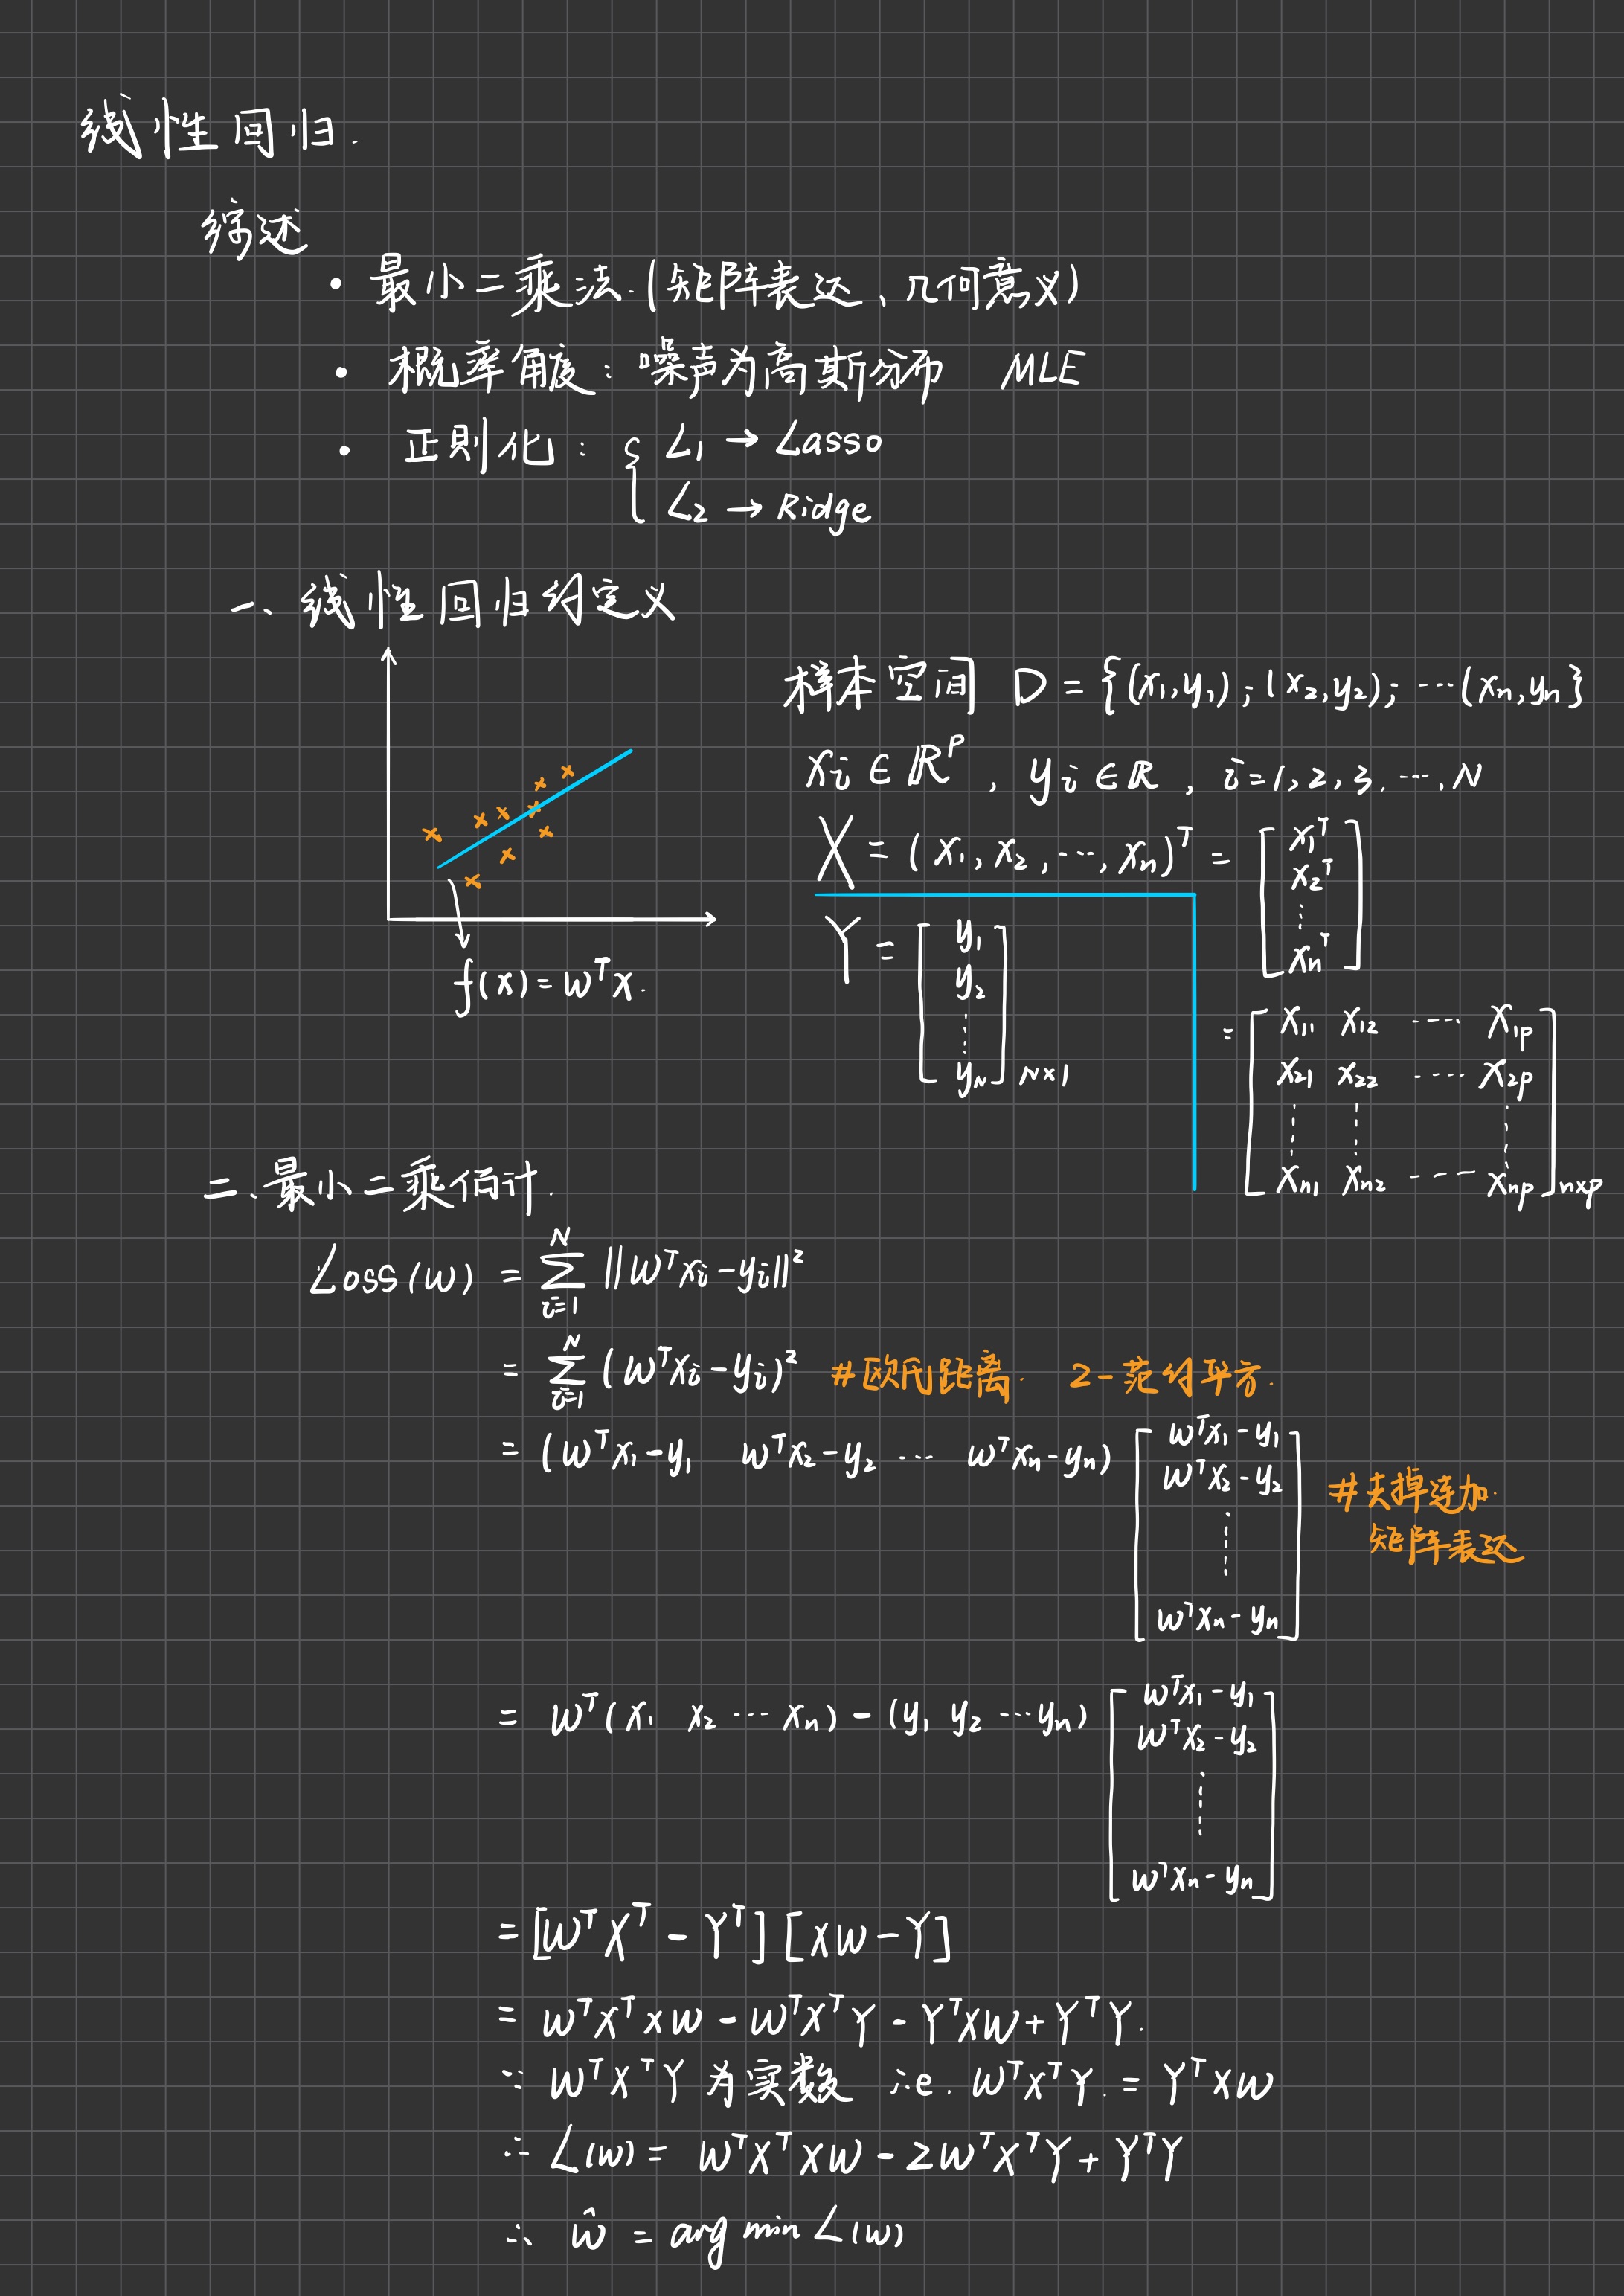 线性回归.
综述
· 最小二乘法.(矩阵表达、几何意义)
· 概率角度: 噪声为高斯分布 MLE
· 正则化: { L₁ → Lasso
L₂ → Ridge
一、线性回归的定义
f(x) = wᵀx.
样本空间 D = {(x₁,y₁);(x₂,y₂);…(xₙ,yₙ}
xᵢ ∈ ℝᵖ, yᵢ ∈ ℝ, i=1,2,3,…,N
X = (x₁,x₂,…,xₙ)ᵀ = [x₁ᵀ
x₂ᵀ
⋮
xₙᵀ]
= [x₁₁ x₁₂ ⋯ x₁ₚ
x₂₁ x₂₂ ⋯ x₂ₚ
⋮ ⋮ ⋮
xₙ₁ xₙ₂ ⋯ xₙₚ] n×p
Y = [y₁
y₂
⋮
y_N] N×1
二、最小二乘估计.
Loss(w) = ∑ᵢ₌₁ᴺ ‖wᵀxᵢ-yᵢ‖²
= ∑ᵢ₌₁ᴺ (wᵀxᵢ-yᵢ)² #欧氏距离. 2-范的平方.
= (wᵀx₁-y₁ wᵀx₂-y₂ … wᵀxₙ-yₙ) [wᵀx₁-y₁
wᵀx₂-y₂
⋮
wᵀxₙ-yₙ]
#去掉连加.
矩阵表达
= wᵀ(x₁ x₂ … xₙ) - (y₁ y₂ … yₙ) [wᵀx₁-y₁
wᵀx₂-y₂
⋮
wᵀxₙ-yₙ]
= [wᵀXᵀ - Yᵀ] [Xw - Y]
= wᵀXᵀXw - wᵀXᵀY - YᵀXw + YᵀY.
∵ wᵀXᵀY 为实数 i.e. wᵀXᵀY. = YᵀXw
∴ L(w) = wᵀXᵀXw - 2wᵀXᵀY + YᵀY
∴ ŵ = arg min L(w)